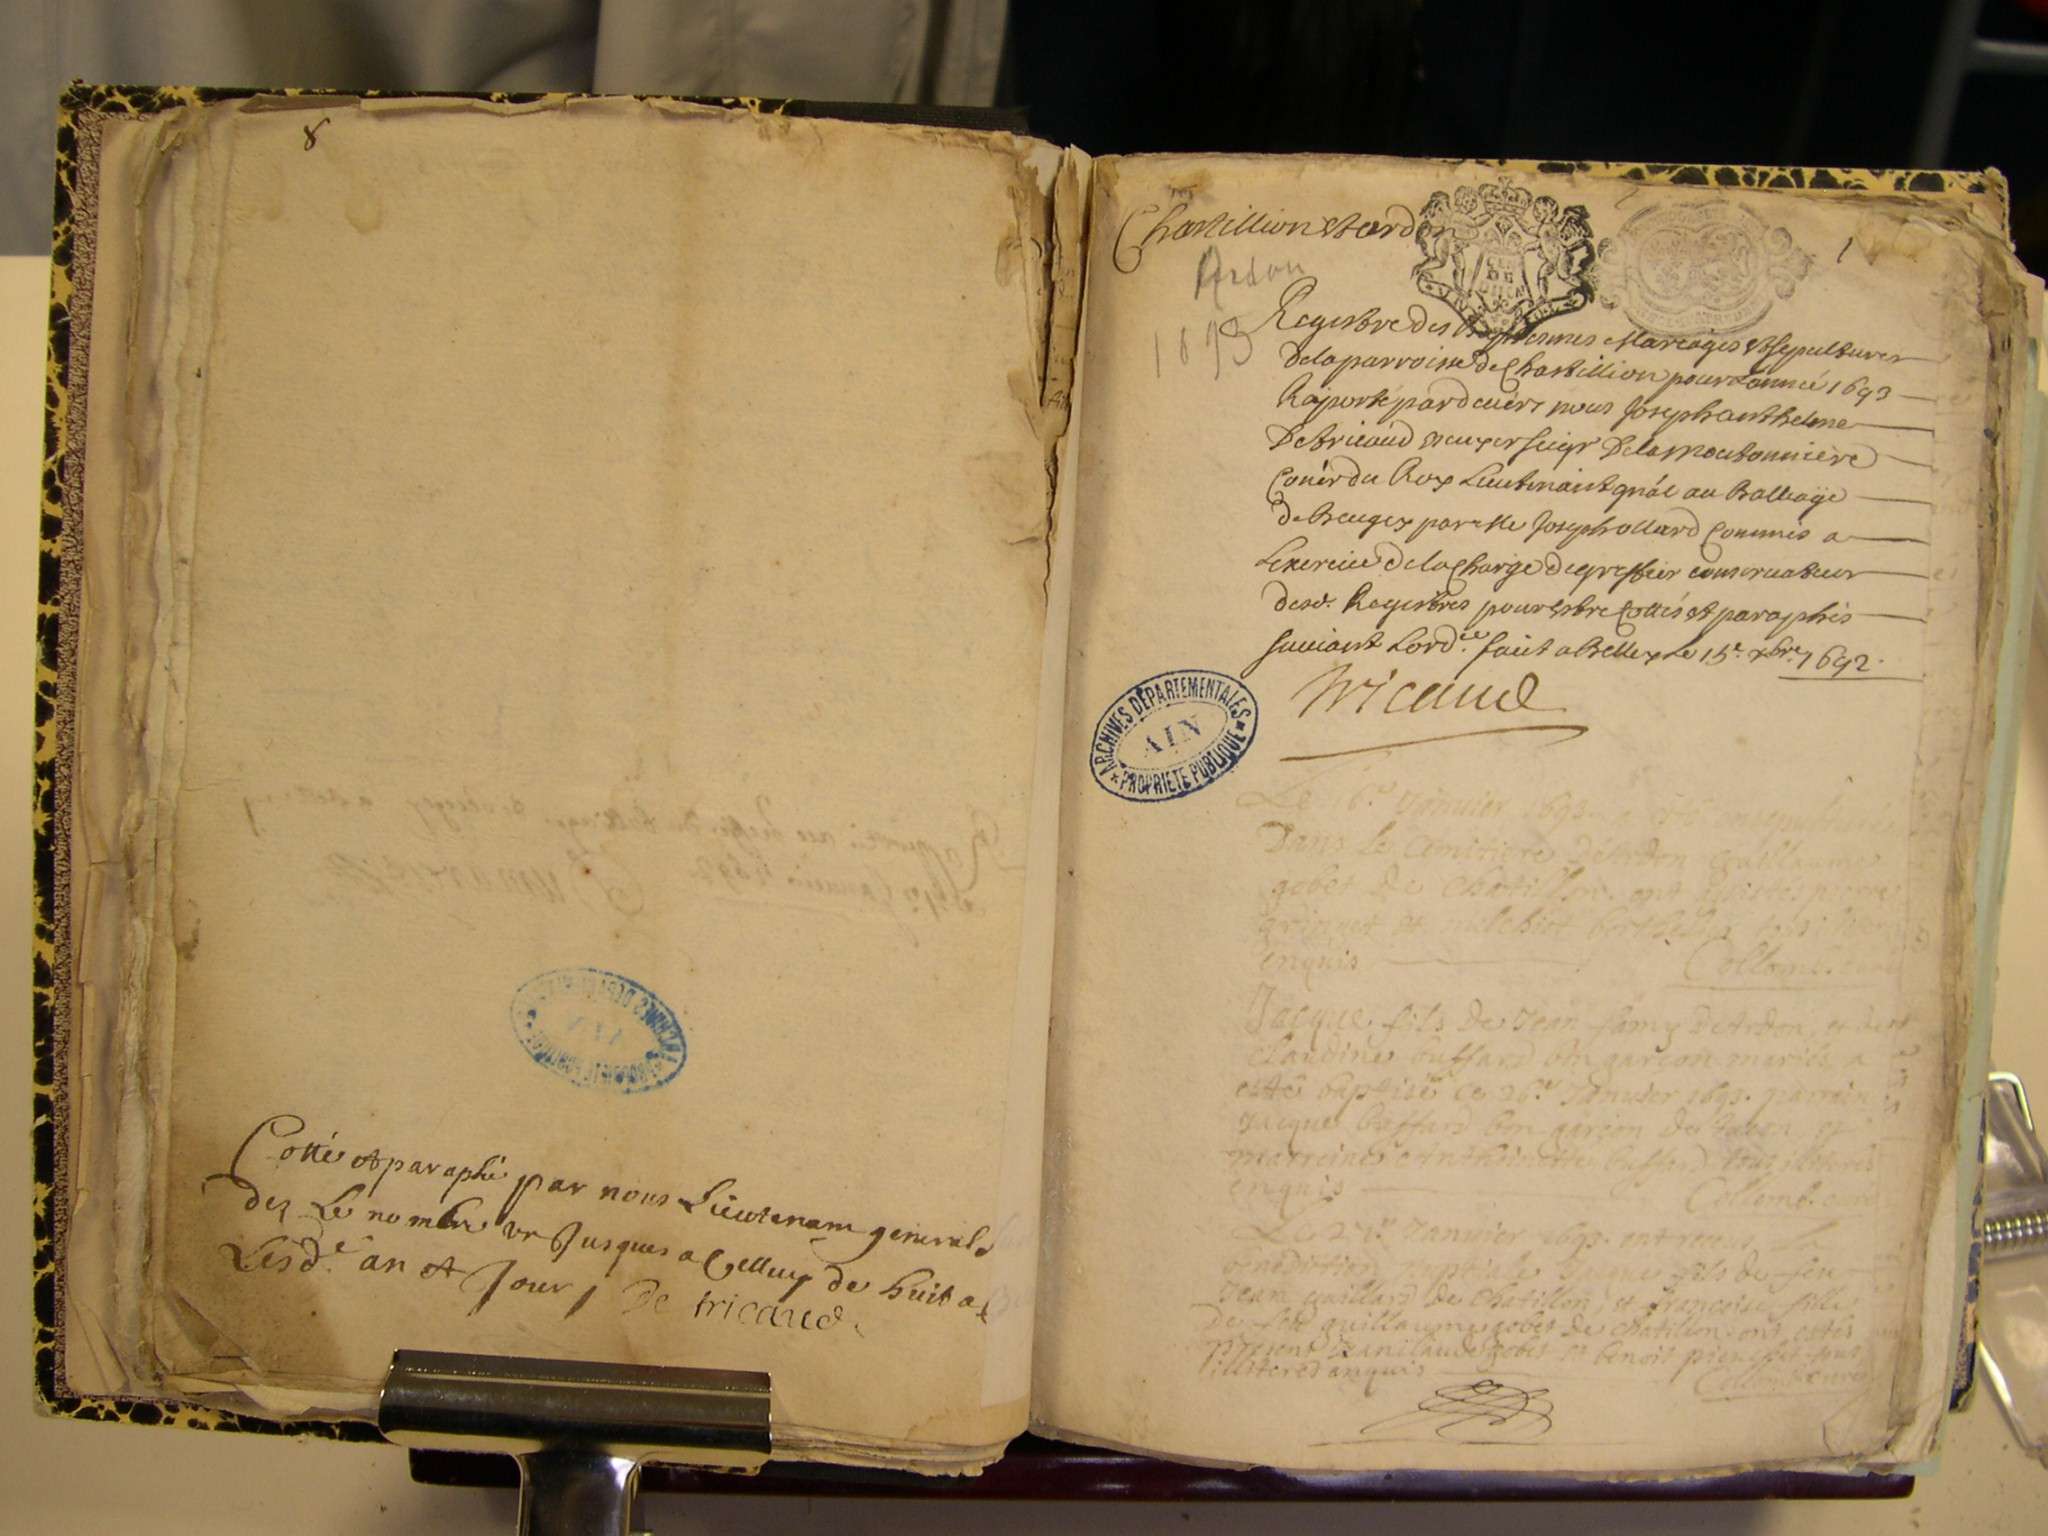 8
Cotté et paraphé par nous Lieutenant general
dez Le nombre un Jusques a Celluy de huit
Lesd. an et Jour De tricaud
Chastillion et ardon
1
Ardon
1693
Regestre des Baptesmes Mariages et sepultures
de la parroisse de Chastillion pour Lannée 1693
Raporté pardeuers nous Joseph anthelme
De tricaud seigr De la moutonniere
Conēr du Roy Lieutenant gnāl au Balliage
de Beugey par Me Joseph ollard Commis a
Lexercice de la Charge de greffier conseruateur
desd. Registres pour estre Cottés et paraphés
suiuant Lord.ce fait a Belley Le 15e xbre 1692.
tricaud
ARCHIVES DÉPARTEMENTALES
AIN
PROPRIETE PUBLIQUE
Le 16e Januier 1693 a esté
Dans Le Cemitiere D'Ardon guillaume
gobet de Chatillon. ont assistés pierre
et melchiot
enquis Collomb. curé
Jacque fils de Jean famy D'Ardon, et de
claudine buffard bon garçon mariés a
esté baptisé ce 26e Januier 1693. parrain
Jacque buffard bon garçon de
marreine Anthoinette buffard tous illiterés
enquis Collomb. curé
Le 27e Januier 1693. ont receus La
benediction nuptiale Jacque fils de feu
Jean gaillard de Chatillon, et francoise fille
De feu guillaume gobet de Chatillon. ont estés
present gobet et benoit tous
illiteres enquis Collomb curé